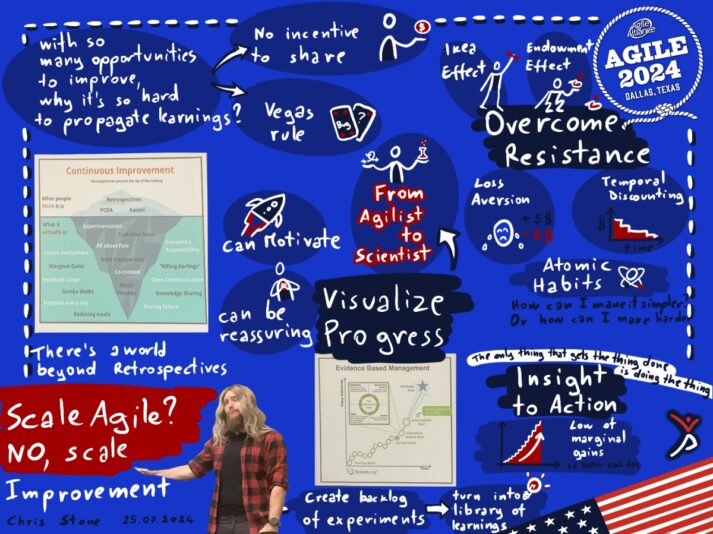 with so
many opportunities
to improve,
why it's so hard
to propagate learnings?
No incentive
to share
$
Vegas
rule
Big
?
Ikea
Effect
Endowment
Effect
Agile
Alliance
AGILE
2024
DALLAS, TEXAS
Overcome
Resistance
Loss
Aversion
+5$
-5$
Temporal
Discounting
$
time
Atomic
Habits
How can I make it simpler?
Or how can I make harder
Continuous Improvement
Retrospectives are just the tip of the iceberg
What people
think it is
Retrospectives
PCDA Kaizen
What it
actually is
Experimentation
Customer Focus
All about flow
Everyone's
Responsibility
Occurs everywhere
Data transparency
Marginal Gains
"Killing Darlings"
Co-created
Feedback Loops
Open Communication
Never
Finished
Gemba Walks
Knowledge Sharing
Happens every day
Sharing failure
Reducing waste
can Motivate
can be
reassuring
From
Agilist
to
Scientist
Visualize
Progress
There's a world
beyond Retrospectives
Evidence Based Management
Strategic
Goal
Intermediate
Goal
Starting State
Time
Scrum.org
The only thing that gets the thing done
is doing the thing
Insight
to Action
Low of
marginal
gains
1% better each day
Scale Agile?
NO, scale
Improvement
Chris Stone 25.07.2024
Create backlog
of experiments
turn into a
library of
learnings